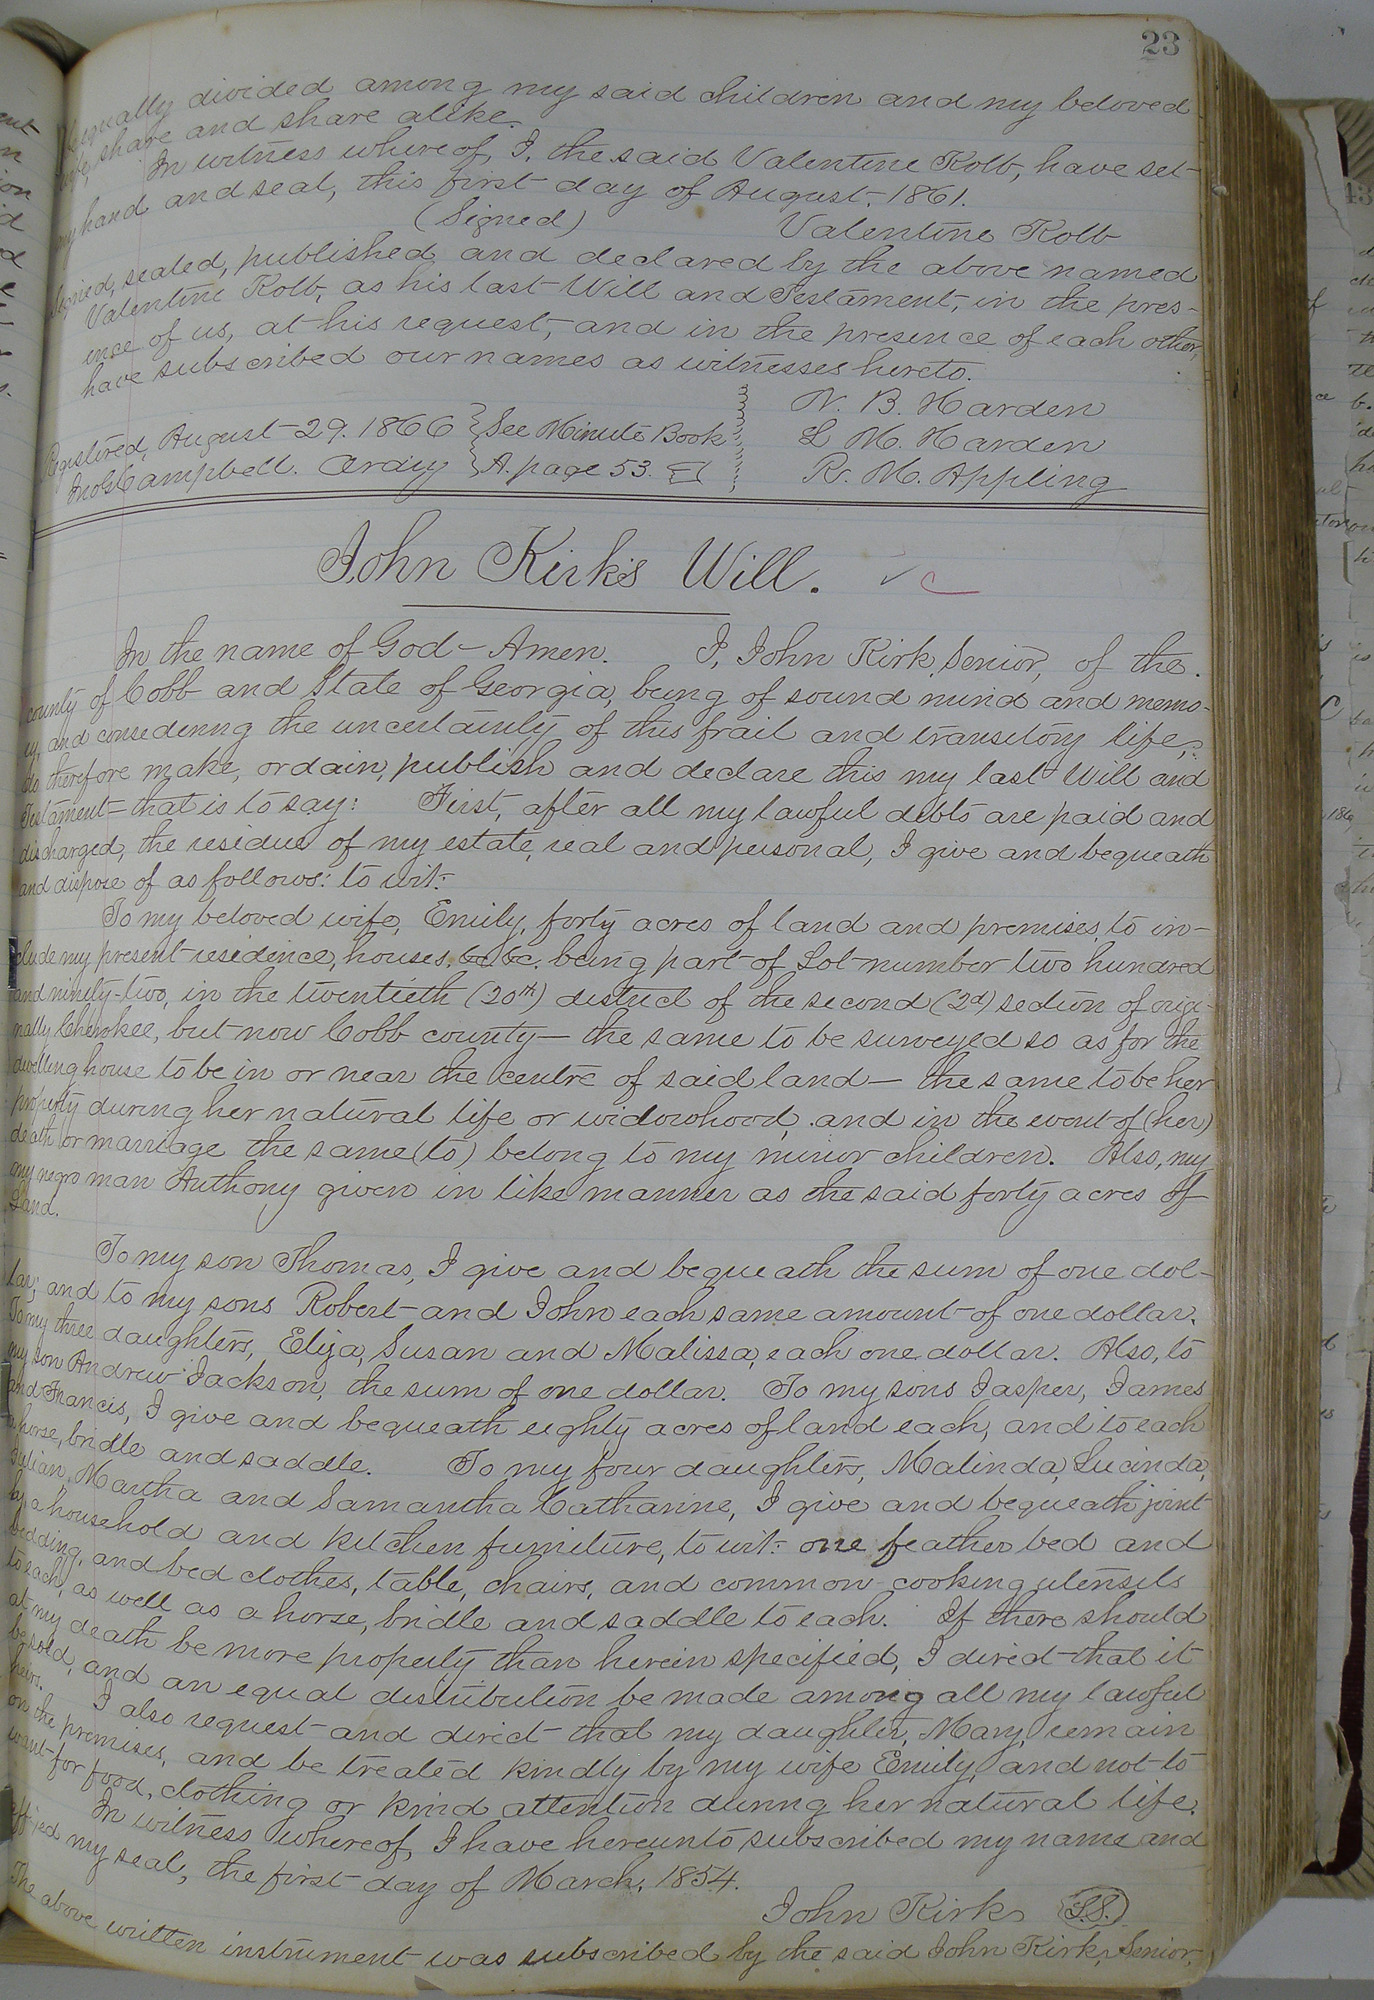 23
equally divided among my said children and my beloved
wife, share and share alike.
In witness whereof, I, the said Valentine Kolb, have set
my hand and seal, this first day of August, 1861.
(Signed) Valentine Kolb
Signed, sealed, published and declared by the above named
Valentine Kolb, as his last Will and Testament, in the pres-
ence of us, at his request, and in the presence of each other,
have subscribed our names as witnesses hereto.
N. B. Harden
Registered, August 29. 1866 See Minute Book L M. Harden
Jno G Campbell. Ordry A. page 53. R. M. Appling
John Kirk's Will. ✓ C
In the name of God - Amen. I, John Kirk, Senior, of the
county of Cobb and State of Georgia, being of sound mind and memo-
ry, and considering the uncertainty of this frail and transitory life,
do therefore make, ordain, publish and declare this my last Will and
Testament - that is to say: First, after all my lawful debts are paid and
discharged, the residue of my estate, real and personal, I give and bequeath
and dispose of as follows: to wit:
To my beloved wife, Emily, forty acres of land and premises, to in-
clude my present residence, houses, &c &c. being part of Lot number two hundred
and ninety-two, in the twentieth (20th) district of the second (2d) section of origi-
nally Cherokee, but now Cobb county - the same to be surveyed so as for the
dwelling house to be in or near the centre of said land - the same to be her
property during her natural life or widowhood, and in the event of (her)
death or marriage the same (to) belong to my minor children. Also, my
my negro man Anthony given in like manner as the said forty acres of
Land.
To my son Thomas, I give and bequeath the sum of one dol-
lar; and to my sons Robert and John each same amount of one dollar.
To my three daughters, Eliza, Susan and Malissa, each one dollar. Also, to
my son Andrew Jackson, the sum of one dollar. To my sons Jasper, James
and Francis, I give and bequeath eighty acres of land each, and to each
a horse, bridle and saddle. To my four daughters, Malinda, Lucinda,
Julian, Martha and Samantha Catharine, I give and bequeath joint-
ly a household and kitchen furniture, to wit: one feather bed and
bedding, and bed clothes, table, chairs, and common cooking utensils
to each, as well as a horse, bridle and saddle to each. If there should
at my death be more property than herein specified, I direct that it
be sold, and an equal distribution be made among all my lawful
heirs.
I also request and direct that my daughter, Mary, remain
on the premises, and be treated kindly by my wife Emily, and not to
want for food, clothing or kind attention during her natural life.
In witness whereof, I have hereunto subscribed my name and
affixed my seal, the first day of March, 1854.
John Kirk L.S.
The above written instrument was subscribed by the said John Kirk, Senior,